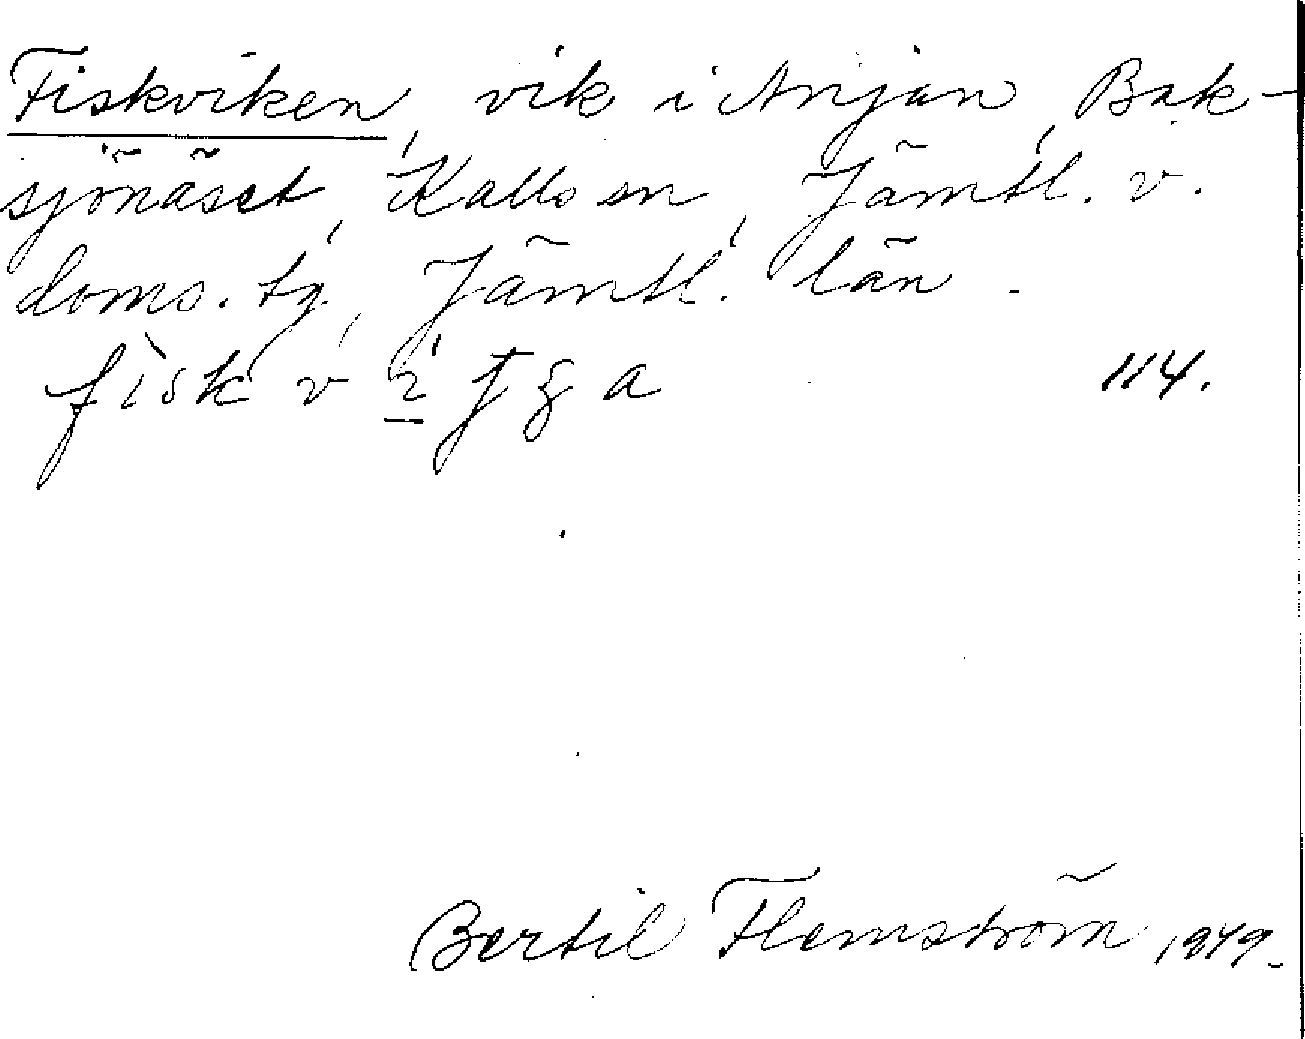 Fiskviken, vik i Anjan, Bak-
sjönäset, Kalls sn, Jämtl. v.
doms. tg, Jämtl. län.
114.
Bertil Flemström 1949.